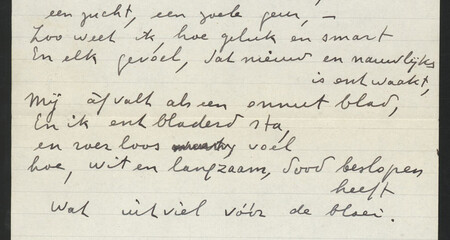 een zucht, een zoele geur, –
Zoo weet ik, hoe geluk en smart
En elk gevoel, dat nieuw en nauwlijks
is ontwaakt,
Mij áfvalt als een onnut blad,
En ik ontbladerd sta,
en roerloos voel
hoe, wit en langzaam, dood beslopen
heeft
Wat uitviel vóór de bloei.